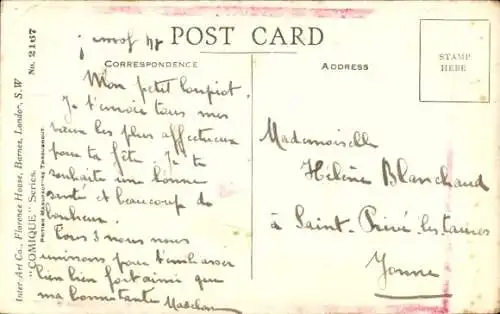 POST CARD
CORRESPONDENCE
ADDRESS
STAMP
HERE
Mon petit loupiot.
Je t'envoie tous mes
vœux les plus affectueux
pour ta fête. Je te
souhaite une bonne
santé et beaucoup de
bonheur.
Tous 3 nous nous
unissons pour t'embrasser
bien bien fort ainsi que
ma
Mademoiselle
Hélène Blanchard
à Saint-Privé les
Yonne
Inter-Art Co., Florence House, Barnes, London, S.W
"COMIQUE" Series. No. 2167
British Manufacture Throughout.